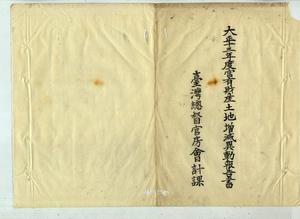 大正十三年度官有財産土地増減異動報告書
臺灣總督官房會計課